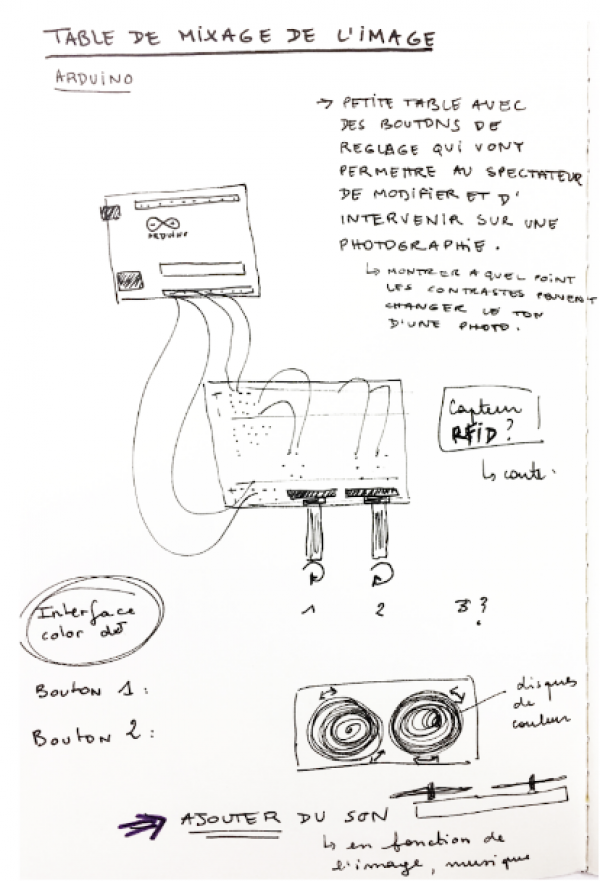 TABLE DE MIXAGE DE L'IMAGE
ARDUINO
→ PETITE TABLE AVEC
DES BOUTONS DE
REGLAGE QUI VONT
PERMETTRE AU SPECTATEUR
DE MODIFIER ET D'
INTERVENIR SUR UNE
PHOTOGRAPHIE.
↳ MONTRER A QUEL POINT
LES CONTRASTES PEUVENT
CHANGER LE TON
D'UNE PHOTO.
ARDUINO
Capteur
RFID?
↳ carte.
1 2 3?
Interface
color dot
BOUTON 1:
BOUTON 2:
disques
de
couleur
→ AJOUTER DU SON
↳ en fonction de
l'image, musique